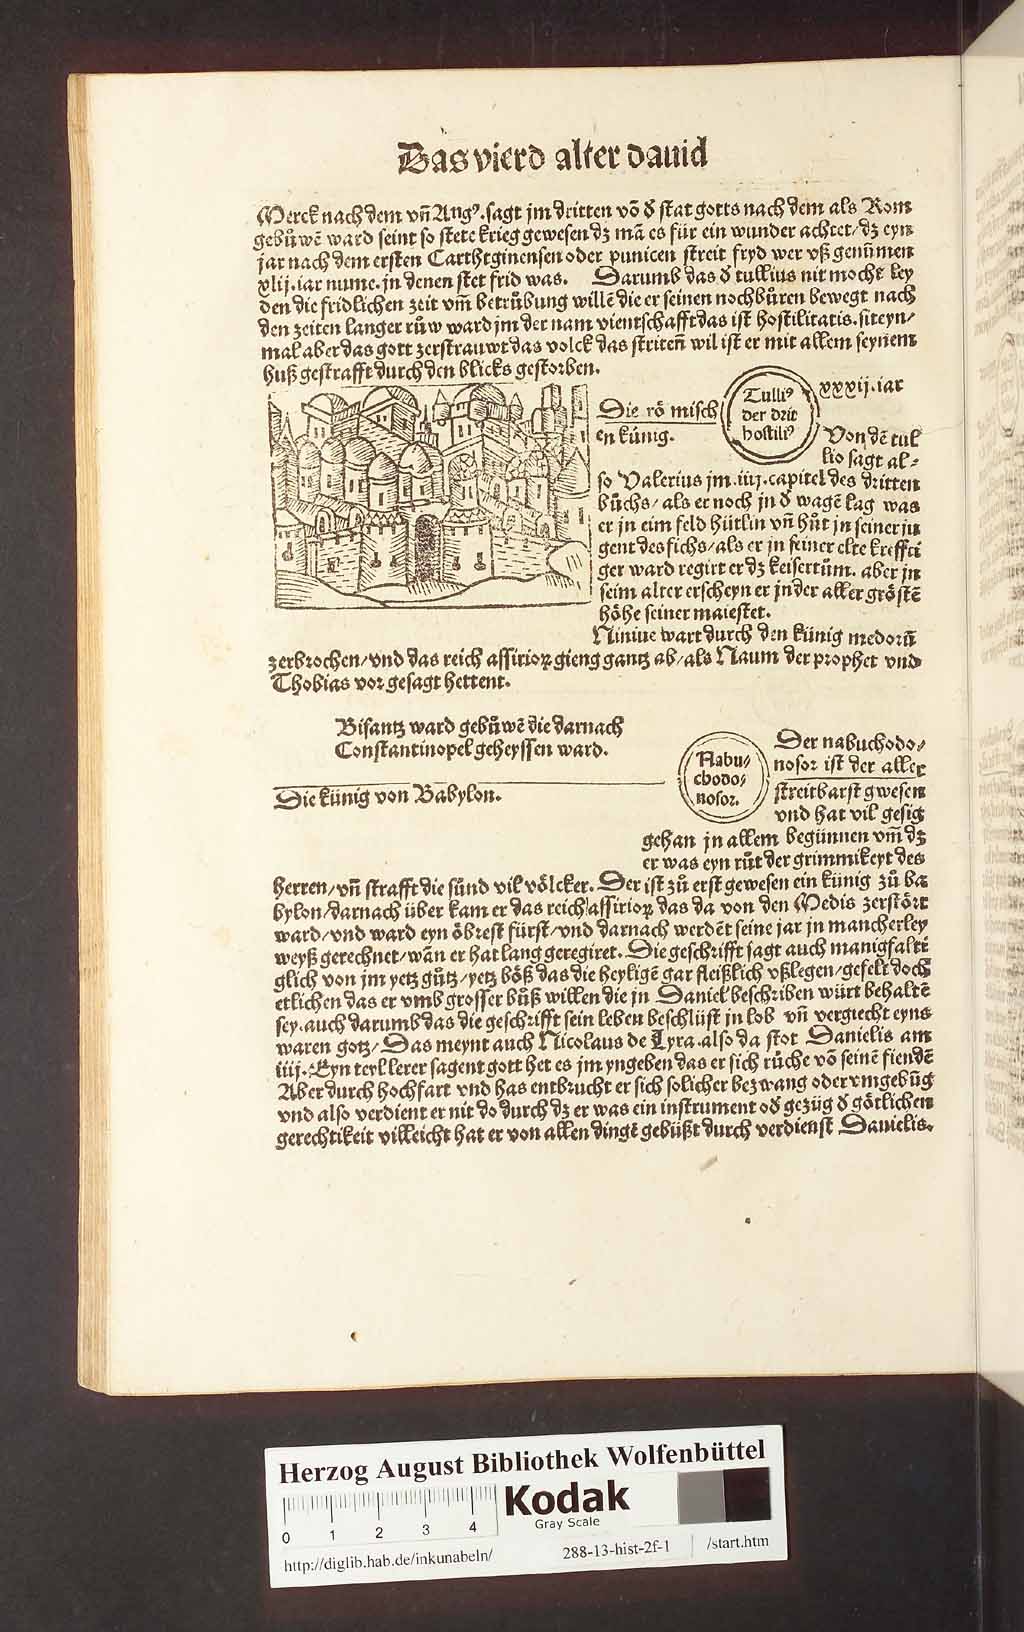 Das vierd alter dauid
Merck nach dem vñ Augꝰ. sagt jm dritten võ ð stat gotts nach dem als Rom
gebůwẽ ward seint so stete krieg gewesen dz mã es für ein wunder achtet/ dz eyn
jar nach dem ersten Carthtginensen oder punicen streit fryd wer vß genům̃en
xlij. iar nume. jn denen stet frid was. Darumb das ð tullius nit mocht ley
den die fridlichen zeit vm̃ betrůbung willẽ die er seinen nochbůren bewegt nach
den zeiten langer růw ward jm der nam vientschafft das ist hostilitatis. siteyn/
mal aber das gott zerstrauwt das volck das striten̄ wil ist er mit allem seynem
huß gestrafft durch den blicks gestorben.
Die rö misch
en künig.
Tulliꝰ
der drit
hostiliꝰ
xxxij. iar
Von dẽ tul
lio sagt al⸗
so Valerius jm .iiij. capitel des dritten
bůchs/ als er noch jn ð wagẽ lag was
er jn eim feld hütlin vñ hůt jn seiner ju
gent des fichs/ als er jn seiner elte kreffti
ger ward regirt er dz keisertům. aber jn
seim alter erscheyn er jn der aller gröstẽ
höhe seiner maiestet.
Niniue wart durch den künig medorū
zerbrochen/ vnd das reich assirioꝝ gieng gantz ab/ als Naum der prophet vnd
Thobias vor gesagt hettent.
Bisantz ward gebůwẽ die darnach
Constantinopel geheyssen ward.
Die künig von Babylon.
Nabu/
chodo/
nosor.
Der nabuchodo/
nosor ist der aller
streitbarst gwesen
vnd hat vil gesig
gehan jn allem begünnen vm̃ dz
er was eyn růt der grimmikeyt des
herren/ vñ strafft die sünd vil völcker. Der ist zů erst gewesen ein künig zů ba
bylon/ darnach über kam er das reich assirioꝝ das da von den Medis zerstört
ward/ vnd ward eyn öbrest fürst/ vnd darnach werdẽt seine jar jn mancherley
weyß gerechnet/ wãn er hat lang geregiret. Die geschrifft sagt auch manigfalti
glich von jm yetz gůtz/ yetz bößz das die heyligẽ gar fleißlich vßlegen/ gefelt doch
etlichen das er vmb grosser bůß willen die jn Daniel beschriben würt behaltẽ
sey. auch darumb das die geschrifft sein leben beschlüst jn lob vñ vergiecht eyns
waren gotz/ Das meynt auch Nicolaus de Lyra. also da stot Danielis am
iiij. Eyn teyl lerer sagent gott het es jm yngeben das er sich růche võ seinẽ fiendẽ
Aber durch hochfart vnd has entbrucht er sich solicher bezwang oder vmgebũg
vnd also verdient er nit do durch dz er was ein instrument oð gezüg ð götlichen
gerechtikeit villeicht hat er von allen dingẽ gebüßt durch verdienst Danielis.
Herzog August Bibliothek Wolfenbüttel
0 1 2 3 4
Kodak
Gray Scale
http://diglib.hab.de/inkunabeln/ 288-13-hist-2f-1 /start.htm